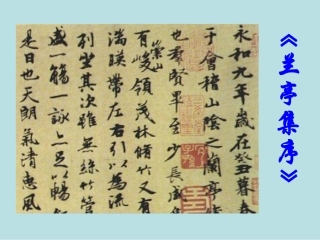 《兰亭集序》
永和九年歲在癸丑暮春
于會稽山陰之蘭亭
也羣賢畢至少長咸
崇山
有峻領茂林脩竹又有
湍暎帶左右引以為流
列坐其次雖無絲竹管
盛一觴一詠亦足以暢
是日也天朗氣清惠風